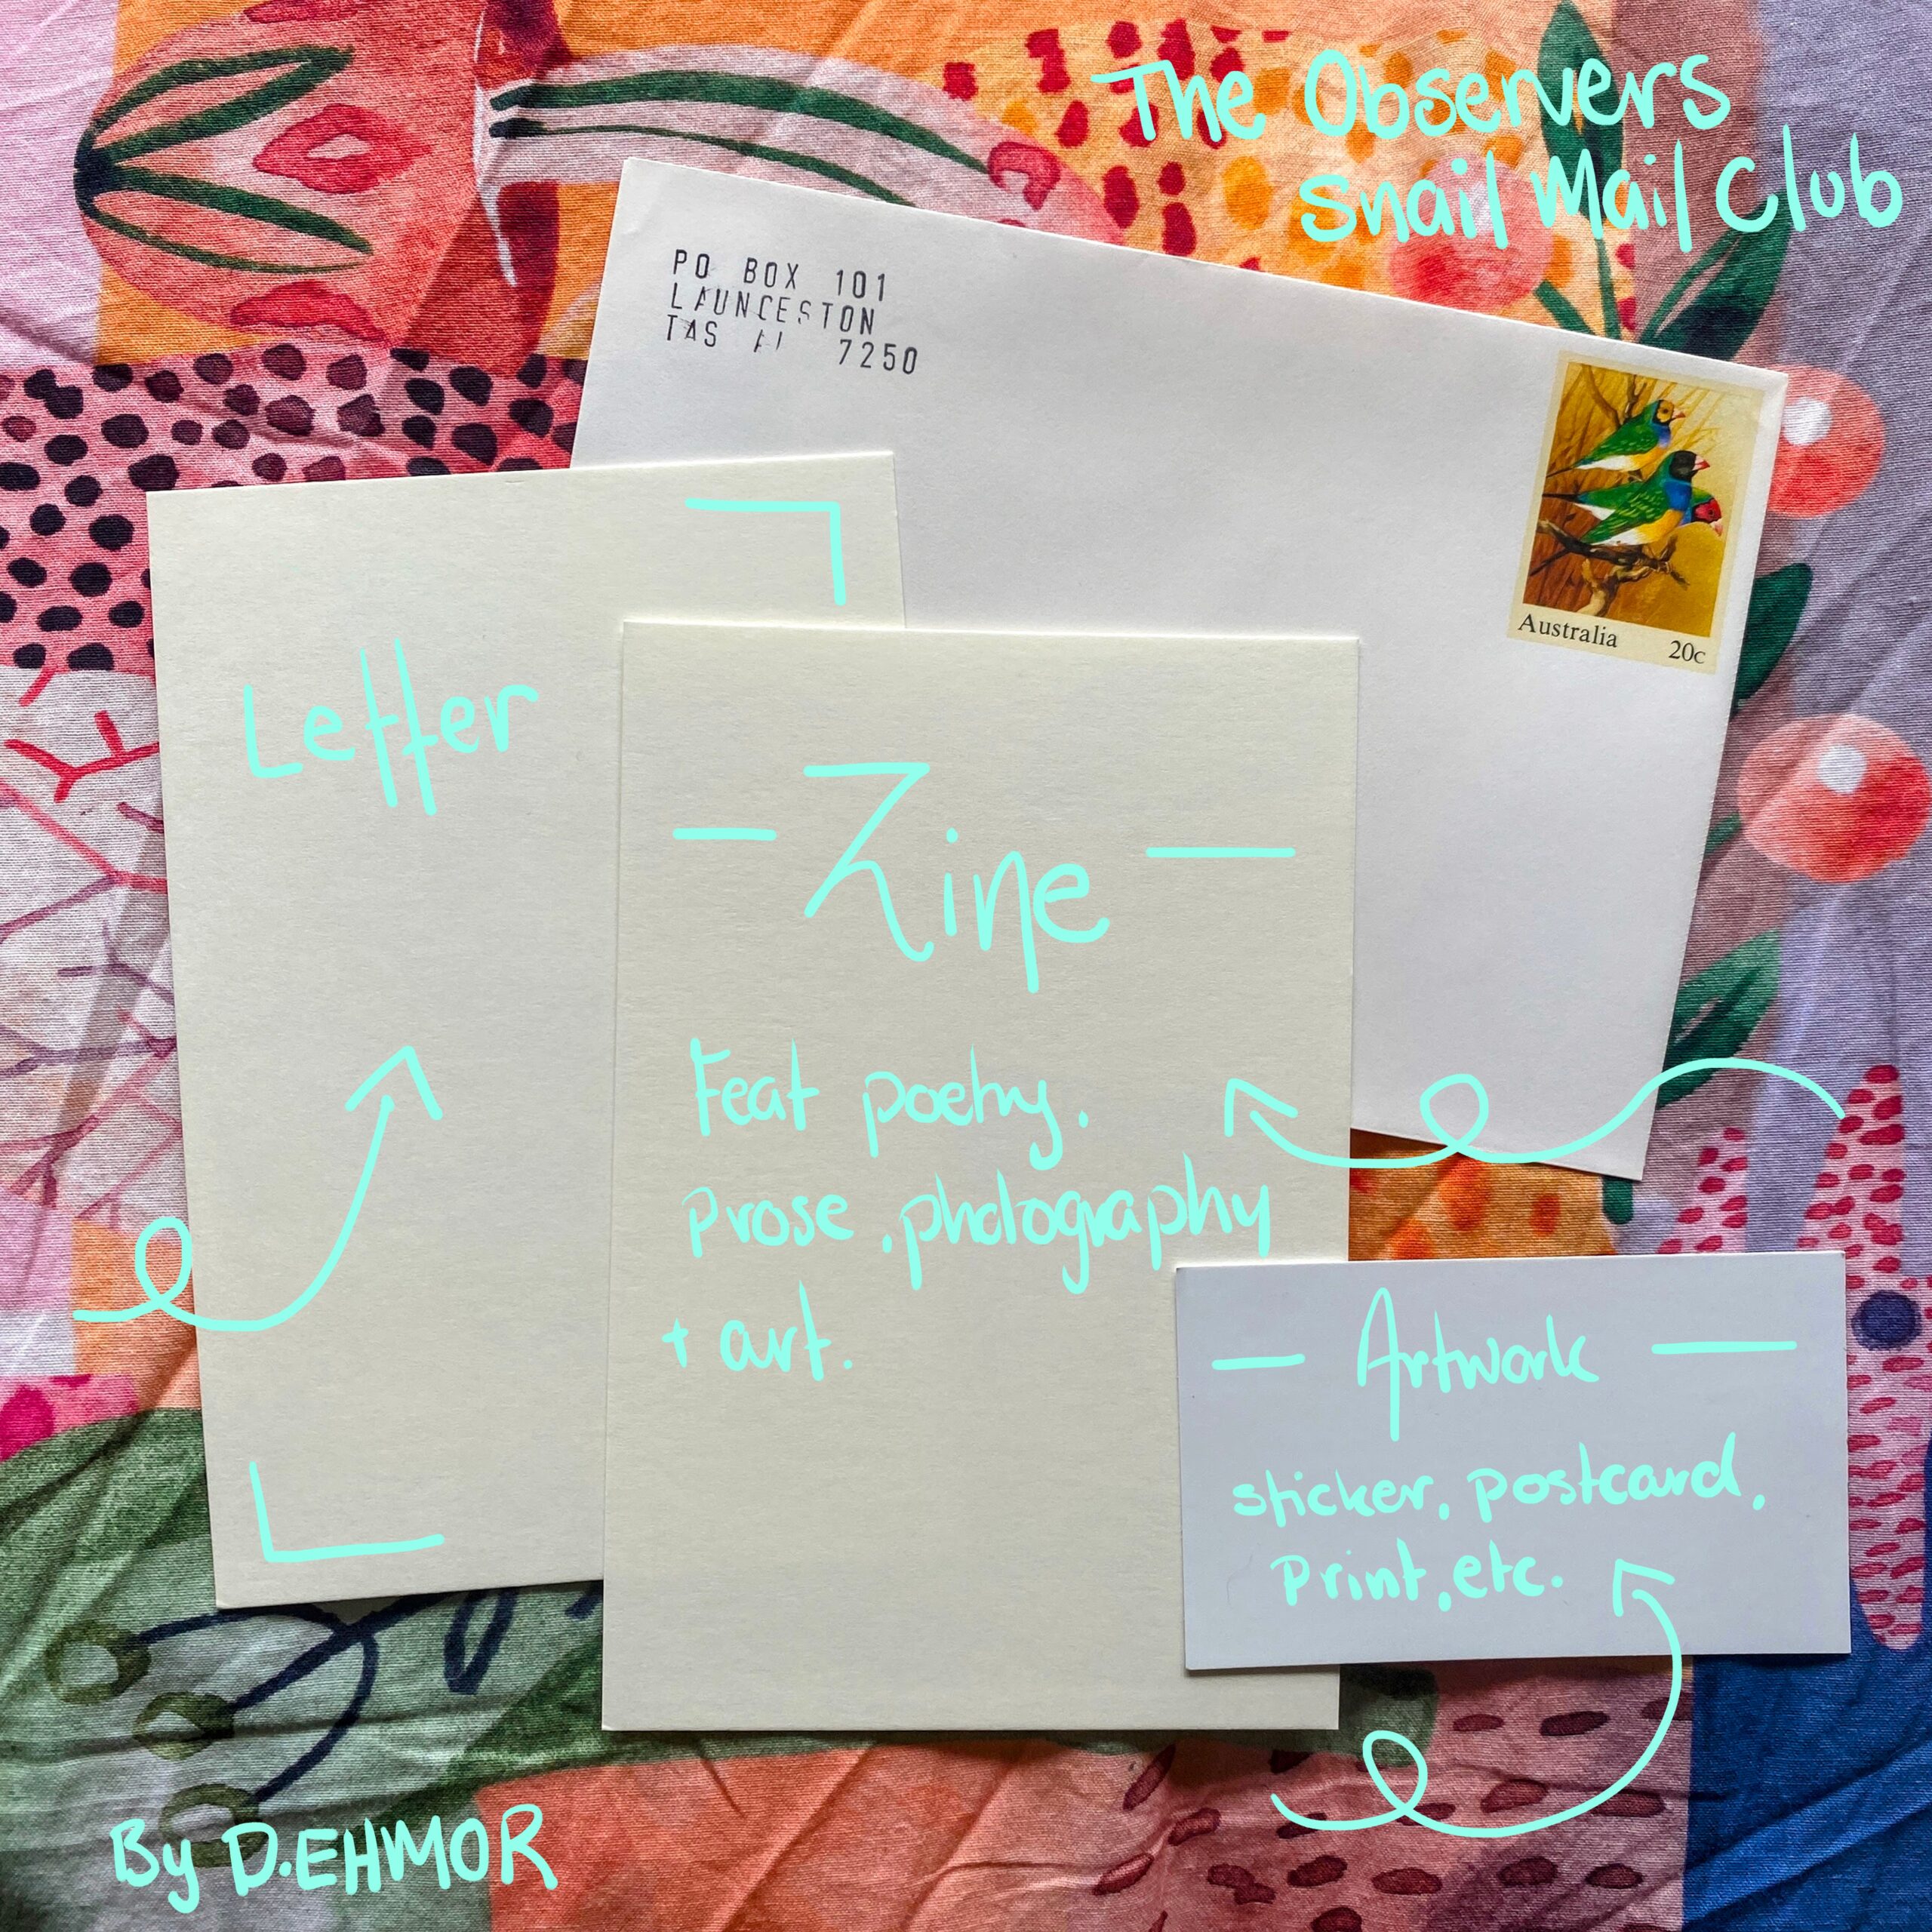 The Observers
Snail Mail Club
PO BOX 101
LAUNCESTON
TAS 7250
Australia 20c
Letter
Zine
Feat poetry.
prose.photography
+ art.
Artwork
sticker. postcard.
print.etc.
By D.EHMOR